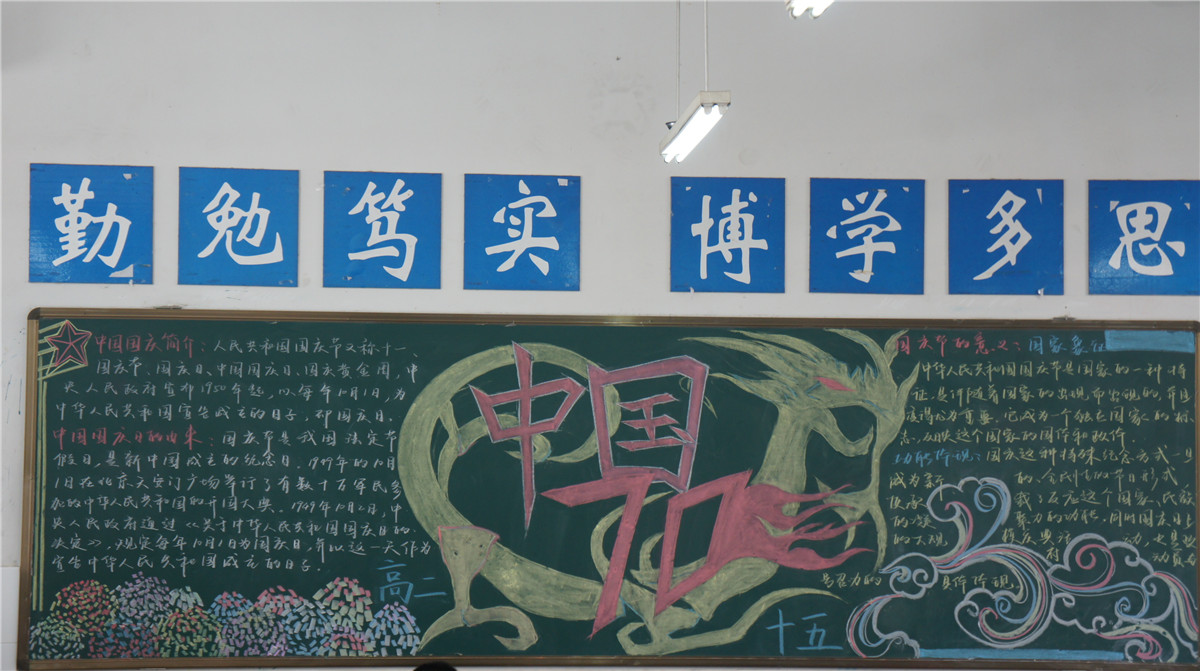 勤勉笃实 博学多思
中国国庆简介：人民共和国国庆节又称十一、
国庆节、国庆日、中国国庆日、国庆黄金周，中
央人民政府宣布1950年起，以每年10月1日，为
中华人民共和国宣告成立的日子，即国庆日。
中国国庆日的由来：国庆节是我国法定节
假日，是新中国成立的纪念日。1949年的10月
1日在北京天安门广场举行了有数十万军民参
加的中华人民共和国的开国大典。1949年10月2日，中
央人民政府通过《关于中华人民共和国国庆日的
决定》，规定每年10月1日为国庆日，并以这一天作为
宣告中华人民共和国成立的日子。
高二
中国
70
十五
国庆节的意义：国家象征
中华人民共和国国庆节是国家的一种特
征，是伴随着国家的出现而出现的，并且
变得尤为重要。它成为一个独立国家的标
志，反映这个国家的国体和政体。
功能体现：国庆这种特殊纪念方式一旦
成为新的、全民性的节日形式
载了反应这个国家、民族
的凝聚力的功能，同时国庆日上
的大规
号召力的
具体体现